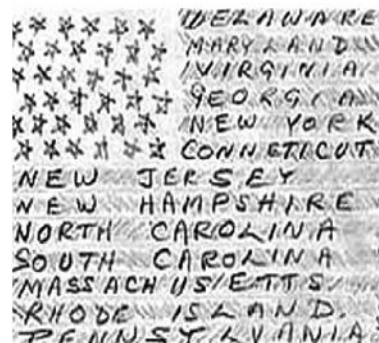 DELAWARE
MARYLAND
VIRGINIA
GEORGIA
NEW YORK
CONNETICUT
NEW JERSEY
NEW HAMPSHIRE
NORTH CAROLINA
SOUTH CAROLINA
MASSACHUSETTS
RHODE ISLAND.
PENNSYLVANIA